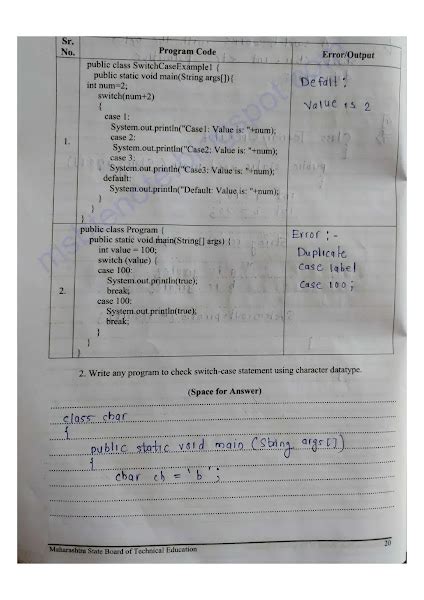 Sr. No.
Program Code
Error/Output
1.
public class SwitchCaseExample1 {
public static void main(String args[]){
int num=2;
switch(num+2)
{
case 1:
System.out.println("Case1: Value is: "+num);
case 2:
System.out.println("Case2: Value is: "+num);
case 3:
System.out.println("Case3: Value is: "+num);
default:
System.out.println("Default: Value is: "+num);
}
}
}
Defalt:
Value is 2
2.
public class Program {
public static void main(String[] args) {
int value = 100;
switch (value) {
case 100:
System.out.println(true);
break;
case 100:
System.out.println(true);
break;
}
}
}
Error :-
Duplicate
case label
case 100;
2. Write any program to check switch-case statement using character datatype.
(Space for Answer)
class char
{
public static void main (String args[])
{
char ch = 'b';
Maharashtra State Board of Technical Education
20